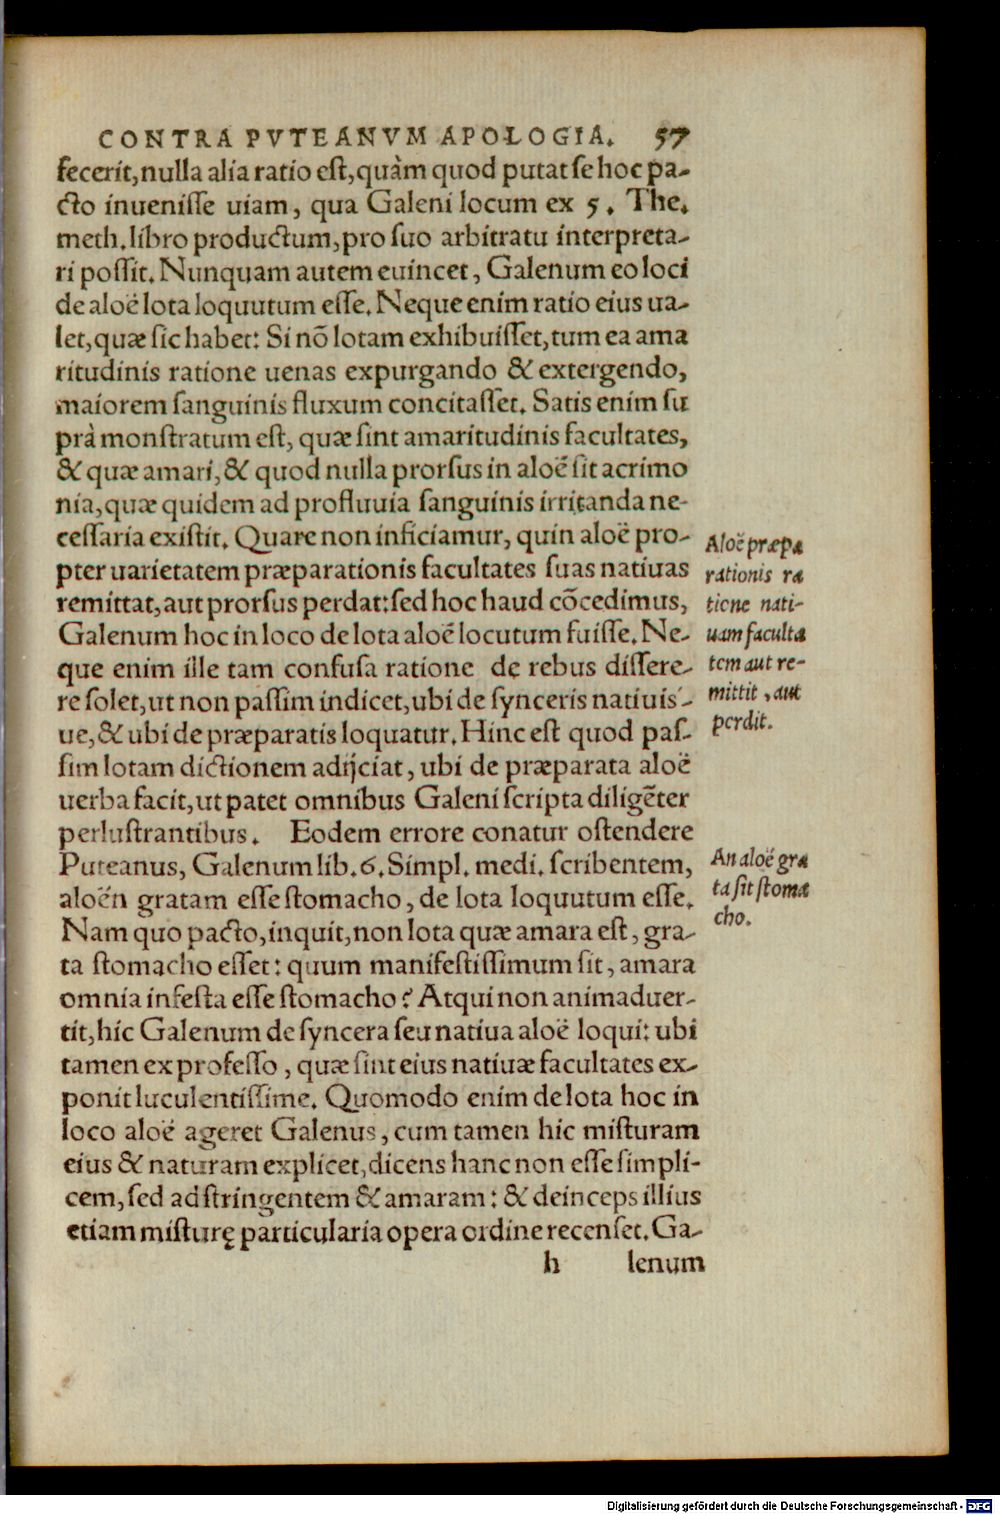 CONTRA PVTEANVM APOLOGIA. 57
fecerit, nulla alia ratio eſt, quàm quod putat ſe hoc pa-
cto inueniſſe uiam, qua Galeni locum ex 5. The.
meth. libro productum, pro ſuo arbitratu interpreta-
ri poſſit. Nunquam autem euincet, Galenum eo loci
de aloë lota loquutum eſſe. Neque enim ratio eius ua-
let, quæ ſic habet: Si nõ lotam exhibuiſſet, tum ea ama
ritudinis ratione uenas expurgando & extergendo,
maiorem ſanguinis fluxum concitaſſet. Satis enim ſu
prà monſtratum eſt, quæ ſint amaritudinis facultates,
& quæ amari, & quod nulla prorſus in aloë ſit acrimo
nia, quæ quidem ad profluuia ſanguinis irritanda ne-
ceſſaria exiſtit. Quare non inficiamur, quin aloë pro-
pter uarietatem præparationis facultates ſuas natiuas
remittat, aut prorſus perdat: ſed hoc haud cõcedimus,
Galenum hoc in loco de lota aloë locutum fuiſſe. Ne-
que enim ille tam confuſa ratione de rebus diſſere-
re ſolet, ut non paſſim indicet, ubi de ſynceris natiuis-
ue, & ubi de præparatis loquatur. Hinc eſt quod paſ-
ſim lotam dictionem adijciat, ubi de præparata aloë
uerba facit, ut patet omnibus Galeni ſcripta diligẽter
perluſtrantibus. Eodem errore conatur oſtendere
Puteanus, Galenum lib. 6. Simpl. medi. ſcribentem,
aloën gratam eſſe ſtomacho, de lota loquutum eſſe.
Nam quo pacto, inquit, non lota quæ amara eſt, gra-
ta ſtomacho eſſet: quum manifeſtiſſimum ſit, amara
omnia infeſta eſſe ſtomacho? Atqui non animaduer-
tit, hic Galenum de ſyncera ſeu natiua aloë loqui: ubi
tamen ex profeſſo, quæ ſint eius natiuæ facultates ex-
ponit luculentiſſime. Quomodo enim de lota hoc in
loco aloë ageret Galenus, cum tamen hic miſturam
eius & naturam explicet, dicens hanc non eſſe ſimpli-
cem, ſed adſtringentem & amaram: & deinceps illius
etiam miſturę particularia opera ordine recenſet. Ga-
h lenum
Aloë præpa
rationis ra
tione nati-
uam faculta
tem aut re-
mittit, aut
perdit.
An aloë gra
ta ſit ſtoma
cho.
Digitalisierung gefördert durch die Deutsche Forschungsgemeinschaft - DFG